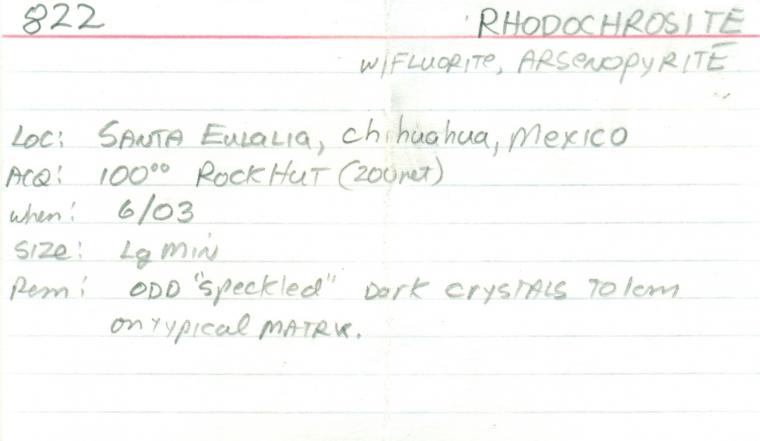 822 RHODOCHROSITE
W/FLUORITE, ARSENOPYRITE
Loc: SANTA EULALIA, Chihuahua, Mexico
ACQ: 100⁰⁰ ROCK HUT (200 net)
when: 6/03
Size: Lg MIN
Rem: ODD "speckled" Dark CRYSTALS TO 1cm
on typical MATRIX.